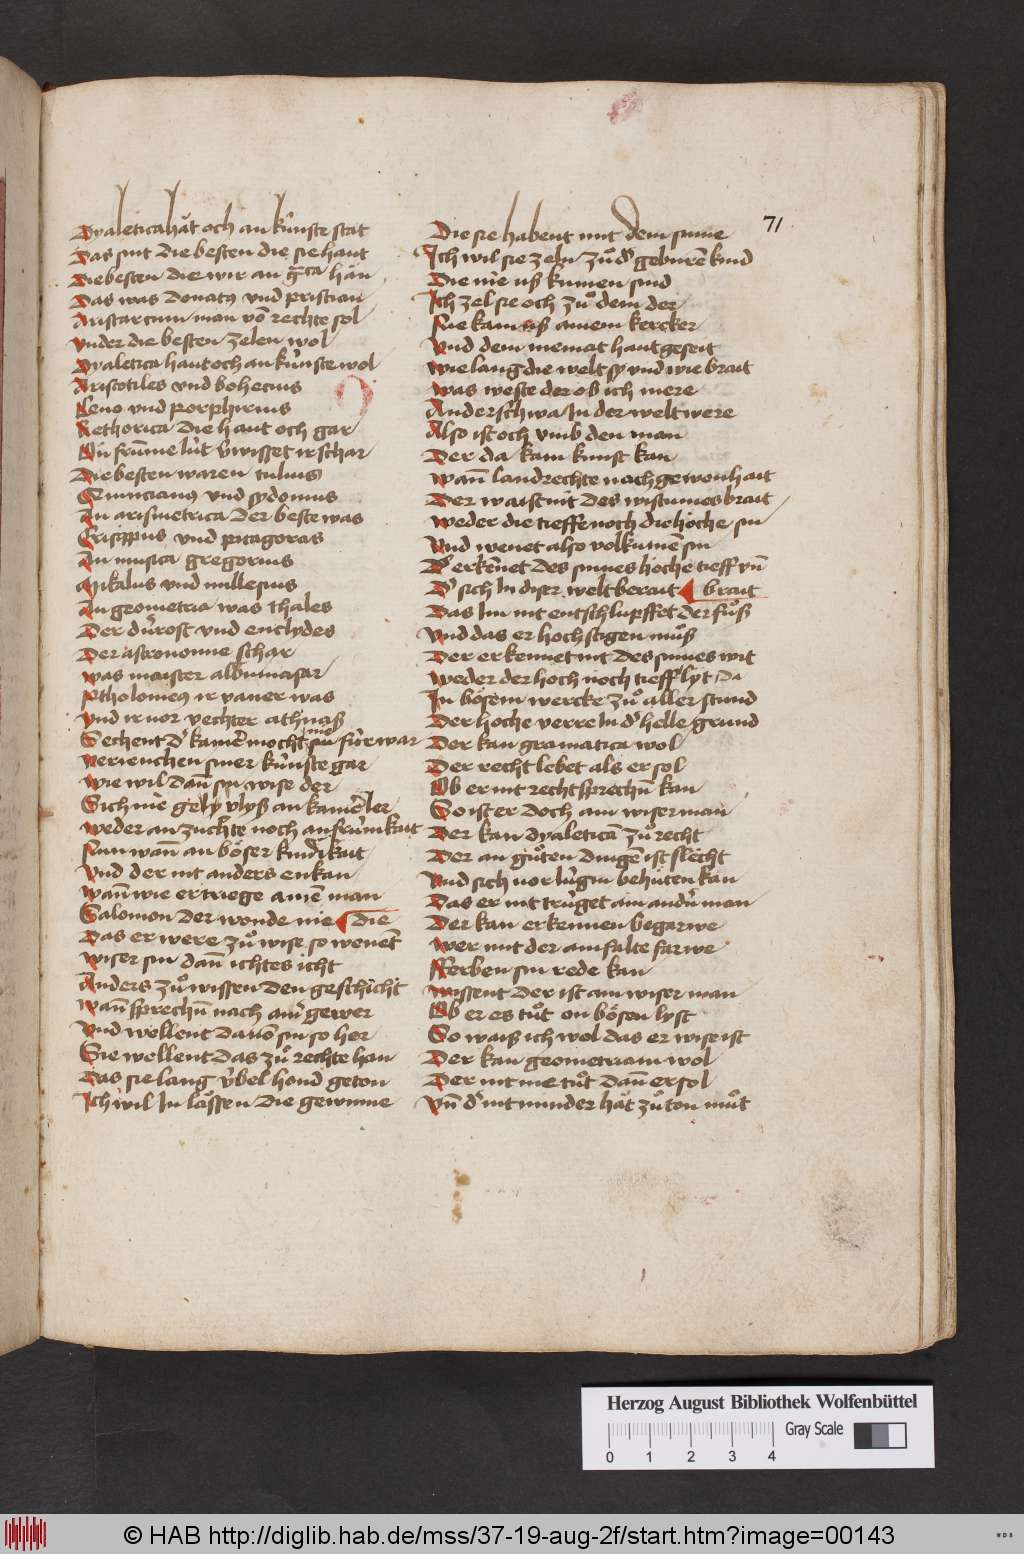 71
Dyaletica hăt och an kúnste stat
Das sint die besten die sie haut
Die besten die wir an gᵃca hān
Das was donatꝰ vnd pristian
Aristarcum man vō rechte sol
vnder die besten zelen wol
Dyaletica haut och an kúnste wol
Aristotiles vnd bohecius
Zeno vnd porphirius
Rethorica die haut och gar
Dú frūme lút v̓wisset ir schar
Die besten waren tulius
Quincianꝰ vnd sydonius
An arismetrica der beste was
Crisippus vnd pitagoras
An musica gregorius
Mikalus vnd millesius
An geometria was thales
Der dúrost vnd euclydes
Der astronomie schar
was maister albumasar
Ptholomeꝰ ir vaner was
vnd ir vor vechter athnaß
Sechent d̓ kainē mocht nie fúr war
verienchen siner kúnste gar
wie wil dañ sin wise der
Sich nie gelỹ vlyß an kainē ler
weder an zuchte noch an frúmkait
Nun wañ an bőser kindikait
vnd der nit anders enkan
wañ wie er triege ainē man
Salomon der wonde nie die
Das er were zů wise so wenēt
wiser sin dañ ichtes icht
Anders zů wissen den geschicht
wañ sprechñ nach aim̓ gewer
vnd wellent dauō sin so her
Sie wellent das zů rechte han
Das sie lang v́bel hand geton
Ich wil In lăssen die gewinne
Die sie habent mit dem sinne
Ich wil sie zeln zů d̓ geburē kind
Die nie uß kumen sind
Ich zel sie och zů dem der
Nie kam uß ainem kercker
vnd dem niemat haut geseit
wie lang die welt sy vnd wie brait
was weste der ob ich mere
Anderschwa In der welt were
Also ist och vmb den man
Der da kain kunst kan
wañ landrechte nach gewonhait
Der waist nit des wistumes brait
weder die tieffe noch die hőche sin
vnd wenet also volkumē sin
D̓ erkēnet des sinnes hőche tieff vñ
D̓ sich In diser welt berait brait
Das Im nit entschlupffet der fůß
vnd das er hoch stigen můß
Der erkennet nit des sinnes wit
weder der hoch noch tieff lyt da
In bősem wercke zů aller stund
Der hoche verre In d̓ helle grund
Der kan gramatica wol
Der recht lebet als er sol
Ob er nit recht sprechñ kan
So ist er doch ain wiser man
Der kan dyaleticā zů recht
Der an gůten dingē ist slěcht
vnd sich vor lúgin behúten kan
Das er nit trúget ain andn̓ man
Der kan erkennen begarwe
wer mit der ainfalte farwe
fferben sin rede kan
wissent der ist ain wiser man
Ob er es tůt on bősen lyst
So waiß ich wol das er wise ist
Der kan geometriam wol
Der nit me tůt dañ er sol
vñ d̓ nit minder hăt zů ton můt
Herzog August Bibliothek Wolfenbüttel
Gray Scale
0 1 2 3 4
© HAB http://diglib.hab.de/mss/37-19-aug-2f/start.htm?image=00143
WDB